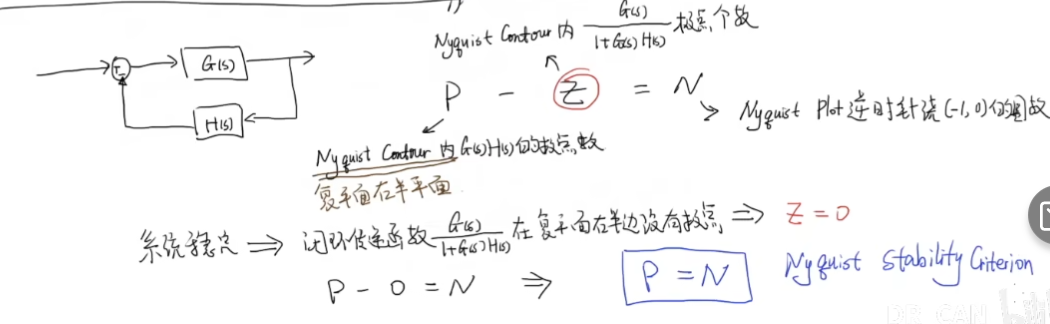 Nyquist Contour 内 G(s)/(1+G(s)H(s)) 极点个数
G(s)
H(s)
P - Z = N
Nyquist Plot 逆时针绕(-1,0)的圈数
Nyquist Contour 内 G(s)H(s)的极点数
复平面右半平面
系统稳定 ⇒ 闭环传递函数 G(s)/(1+G(s)H(s)) 在复平面右半边没有极点 ⇒ Z=0
P - 0 = N ⇒ P = N Nyquist Stability Criterion
DR CAN